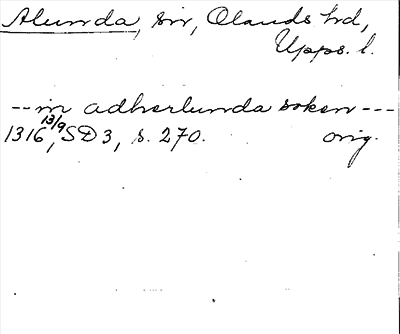 Alunda, sn, Olands hd,
Upps. l.
--in adherlunda soken---
1316 13/9, SD3, s. 270. orig.